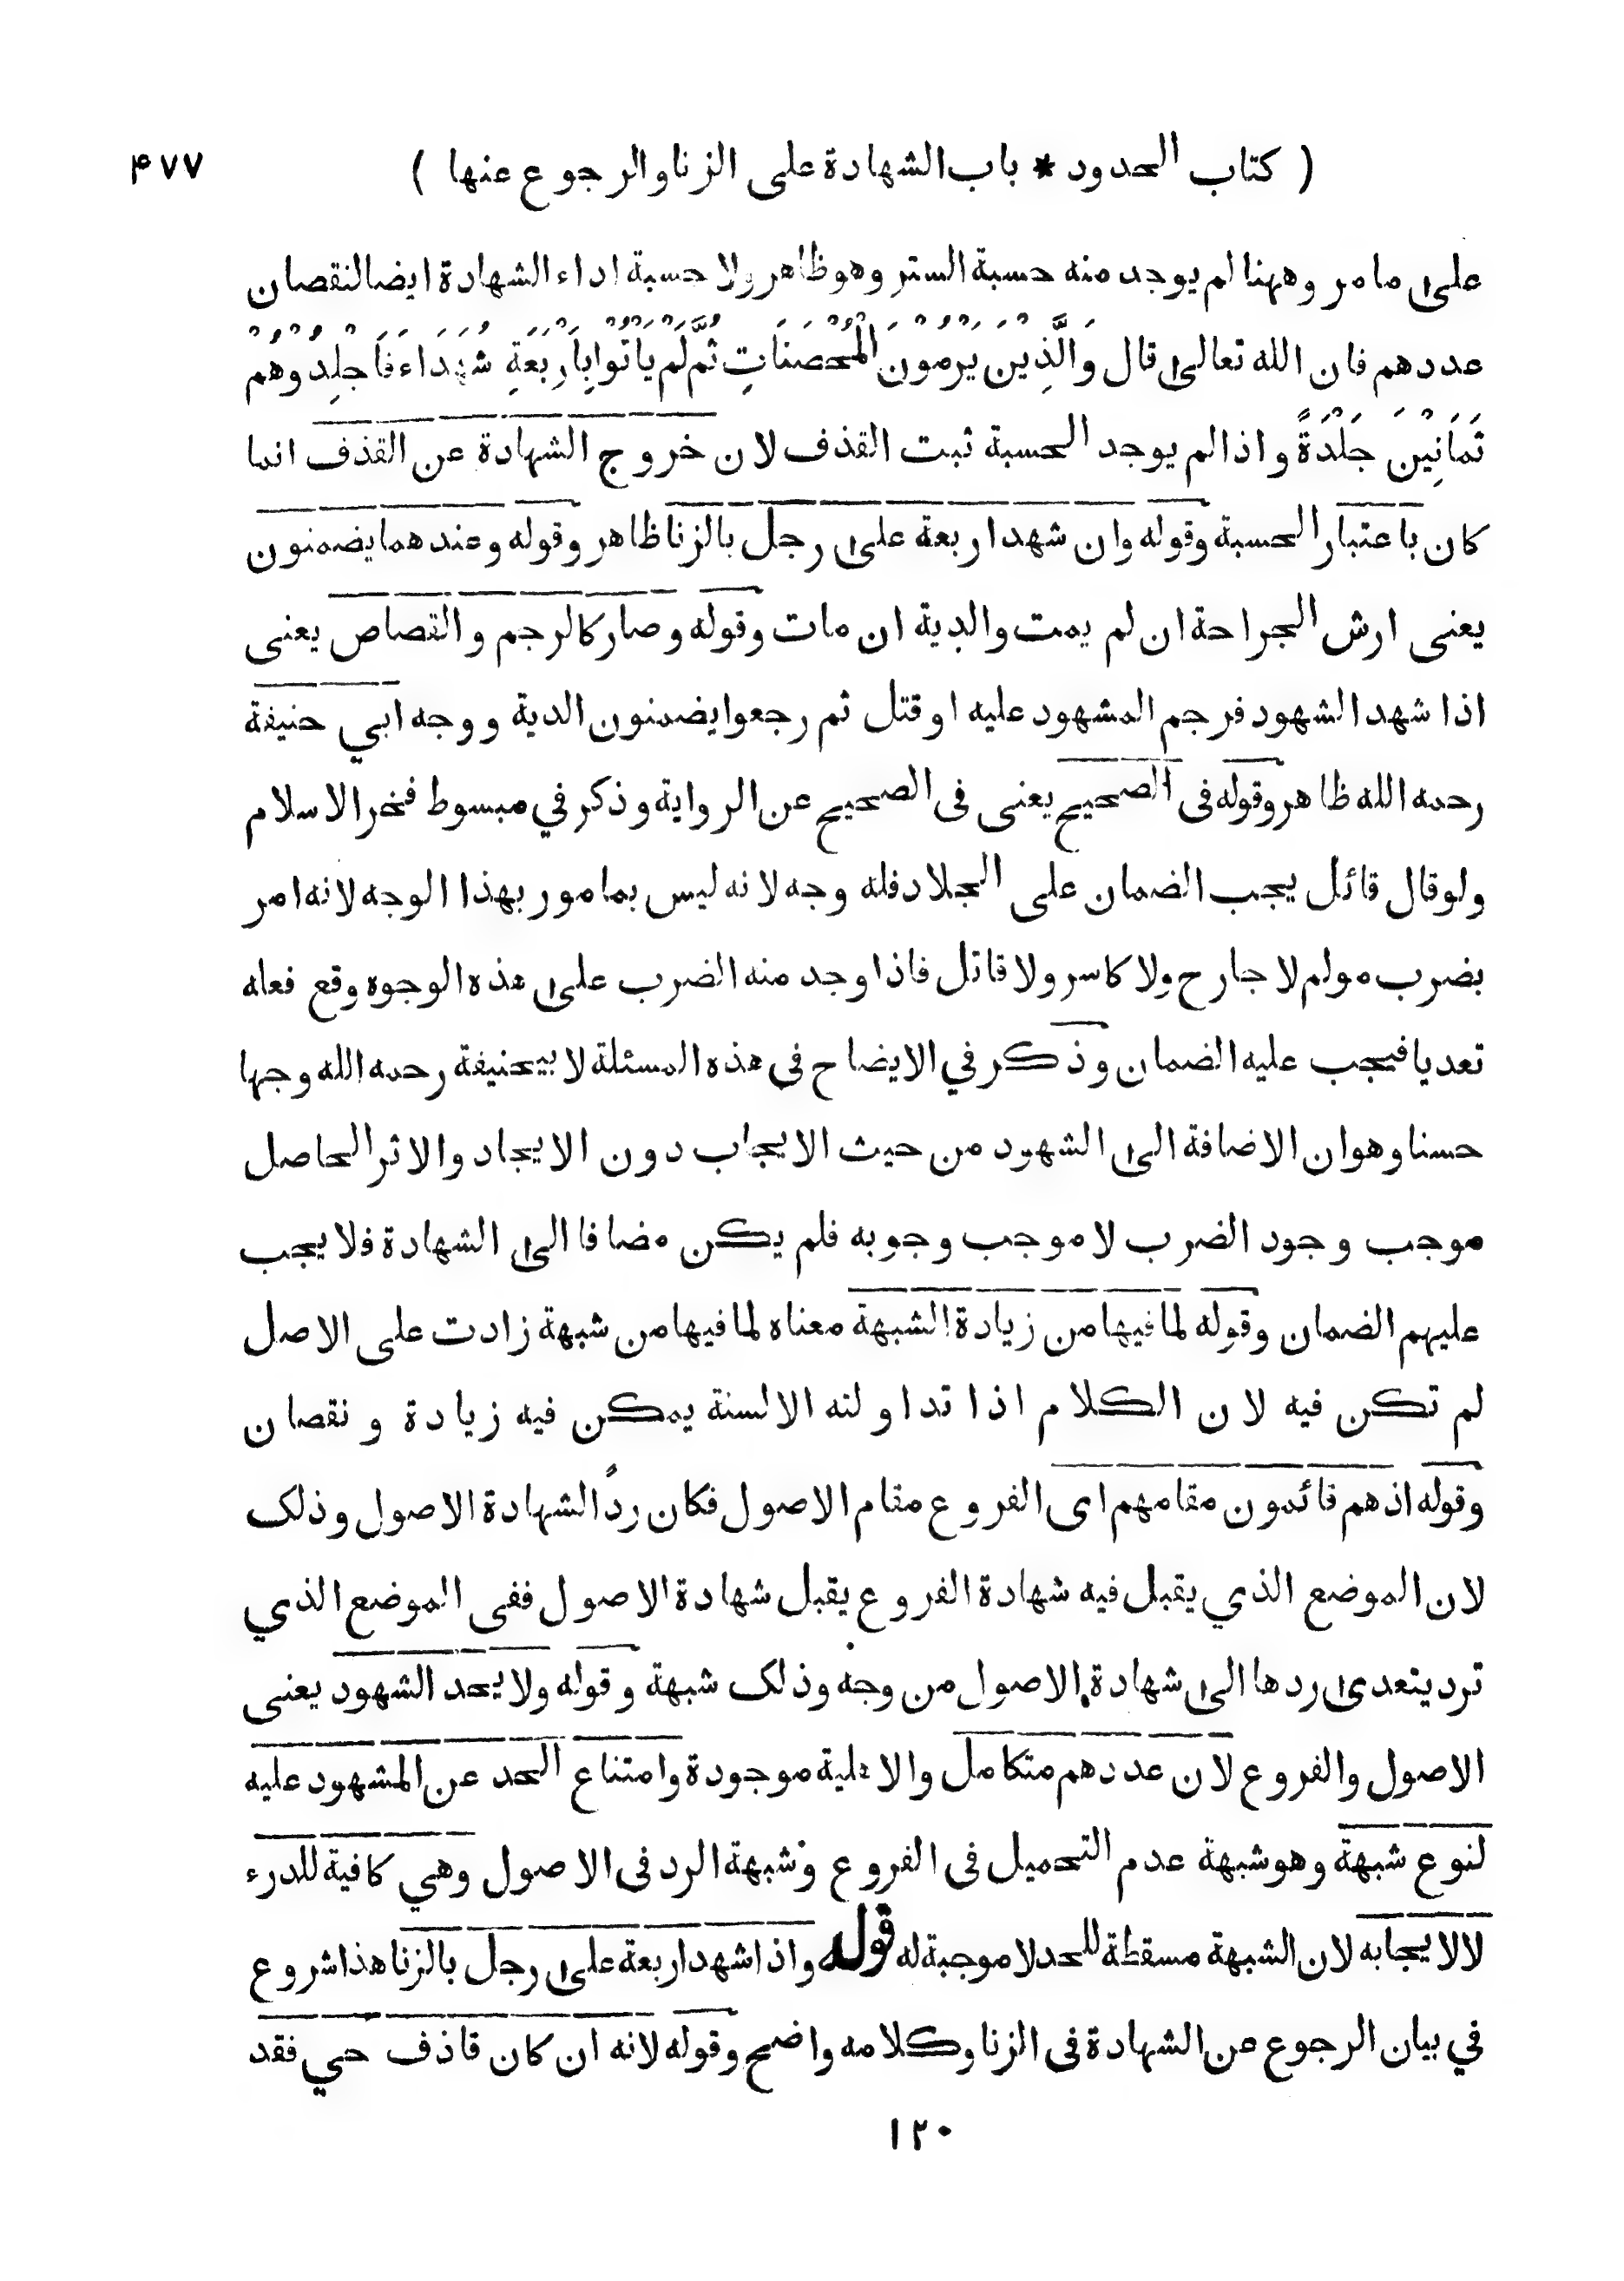 ( كتاب الحدود * باب الشهادة على الزنا والرجوع عنها ) ۴۷۷
على ما مر وههنا لم يوجد منه حسبة الستر وهو ظاهر ولا حسبة اداء الشهادة ايضا لنقصان
عددهم فان الله تعالى قال وَالَّذِيْنَ يَرْمُوْنَ الْمُحْصَنَاتِ ثُمَّ لَمْ يَأْتُوْا بِاَرْبَعَةِ شُهَدَاءَ فَاجْلِدُوْهُمْ
ثَمَانِيْنَ جَلْدَةً واذا لم يوجد الحسبة ثبت القذف لان خروج الشهادة عن القذف انما
كان باعتبار الحسبة وقوله وان شهد اربعة على رجل بالزنا ظاهر وقوله وعندهما يضمنون
يعنى ارش الجراحة ان لم يمت والدية ان مات وقوله وصار كالرجم والقصاص يعنى
اذا شهد الشهود فرجم المشهود عليه او قتل ثم رجعوا يضمنون الدية ووجه ابي حنيفة
رحمه الله ظاهر وقوله فى الصحيح يعنى فى الصحيح عن الرواية وذكر في مبسوط فخر الاسلام
ولو قال قائل يجب الضمان على الجلاد فله وجه لانه ليس بمامور بهذا الوجه لانه امر
بضرب مولم لا جارح ولا كاسر ولا قاتل فاذا وجد منه الضرب على هذه الوجوه وقع فعله
تعديا فيجب عليه الضمان وذكر في الايضاح فى هذه المسئلة لابيحنيفة رحمه الله وجها
حسنا وهو ان الاضافة الى الشهود من حيث الايجاب دون الايجاد والاثر الحاصل
موجب وجود الضرب لا موجب وجوبه فلم يكن مضافا الى الشهادة فلا يجب
عليهم الضمان وقوله لما فيها من زيادة الشبهة معناه لما فيها من شبهة زادت على الاصل
لم تكن فيه لان الكلام اذا تداولته الالسنة يمكن فيه زيادة ونقصان
وقوله اذ هم قائمون مقامهم اى الفروع مقام الاصول فكان ردًا لشهادة الاصول وذلك
لان الموضع الذي يقبل فيه شهادة الفروع يقبل شهادة الاصول ففى الموضع الذي
ترد يتعدى ردها الى شهادة الاصول من وجه وذلك شبهة وقوله ولا يحد الشهود يعنى
الاصول والفروع لان عددهم متكامل والاهلية موجودة وامتناع الحد عن المشهود عليه
لنوع شبهة وهو شبهة عدم التحميل فى الفروع وشبهة الرد فى الاصول وهي كافية للدرء
لا لايجابه لان الشبهة مسقطة للحد لا موجبة له قوله واذا شهد اربعة على رجل بالزنا هذا شروع
في بيان الرجوع عن الشهادة فى الزنا وكلامه واضح وقوله لانه ان كان قاذف حي فقد
۱۲۰